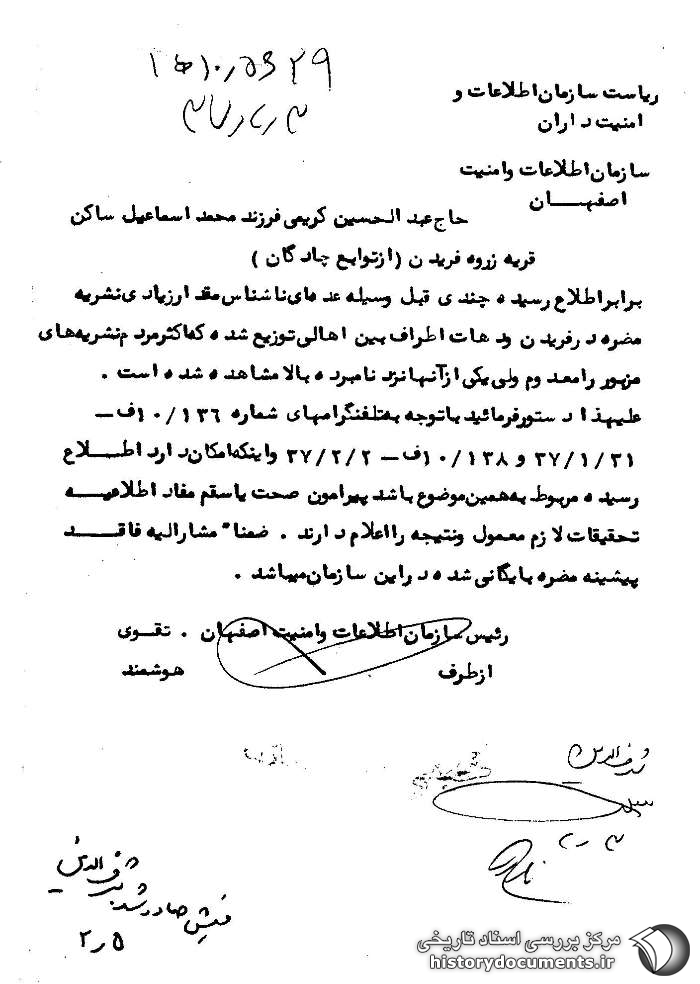 ۱۵۱۰٫۵۳۲۹
۳۷٫۲٫۳
ریاست سازمان اطلاعات و
امنیت داران
سازمان اطلاعات وامنیت
اصفهـــان
حاج عبدالحسین کریمی فرزند محمد اسماعیل ساکن
قریه زروه فریدن (ازتوابع چادگان )
برابراطلاع رسیده چندی قبل وسیله عدهای ناشناس مقدارزیادی نشریه
مضره درفریدن ودهات اطراف بین اهالی توزیع شده که اکثرمردم نشریه های
مزبور رامعدوم ولی یکی ازآنها نزد نامبرده بالا مشاهده شده است .
علیهذا دستورفرمائید باتوجه به تلفنگرامهای شماره ۱۰/۱۳۶ف –
۳۷/۱/۳۱ و ۱۰/۱۳۸ف – ۳۷/۲/۲ واینکه امکان دارد اطـــلاع
رسیده مربوط به همین موضوع باشد پیرامون صحت یاسقم مفاد اطلاعیـــه
تحقیقات لازم معمول ونتیجه رااعلام دارند . ضمنا" مشارالیه فاقـــد
پیشینه مضره بایگانی شده دراین سازمان میباشد .
رئیس سازمان اطلاعات وامنیت اصفهان . تقــوی
ازطرف هوشمند
شرف الدین
۲٫۳
فیش صادرشد شرف الدین
۲٫۵
مرکز بررسی اسناد تاریخی
historydocuments.ir